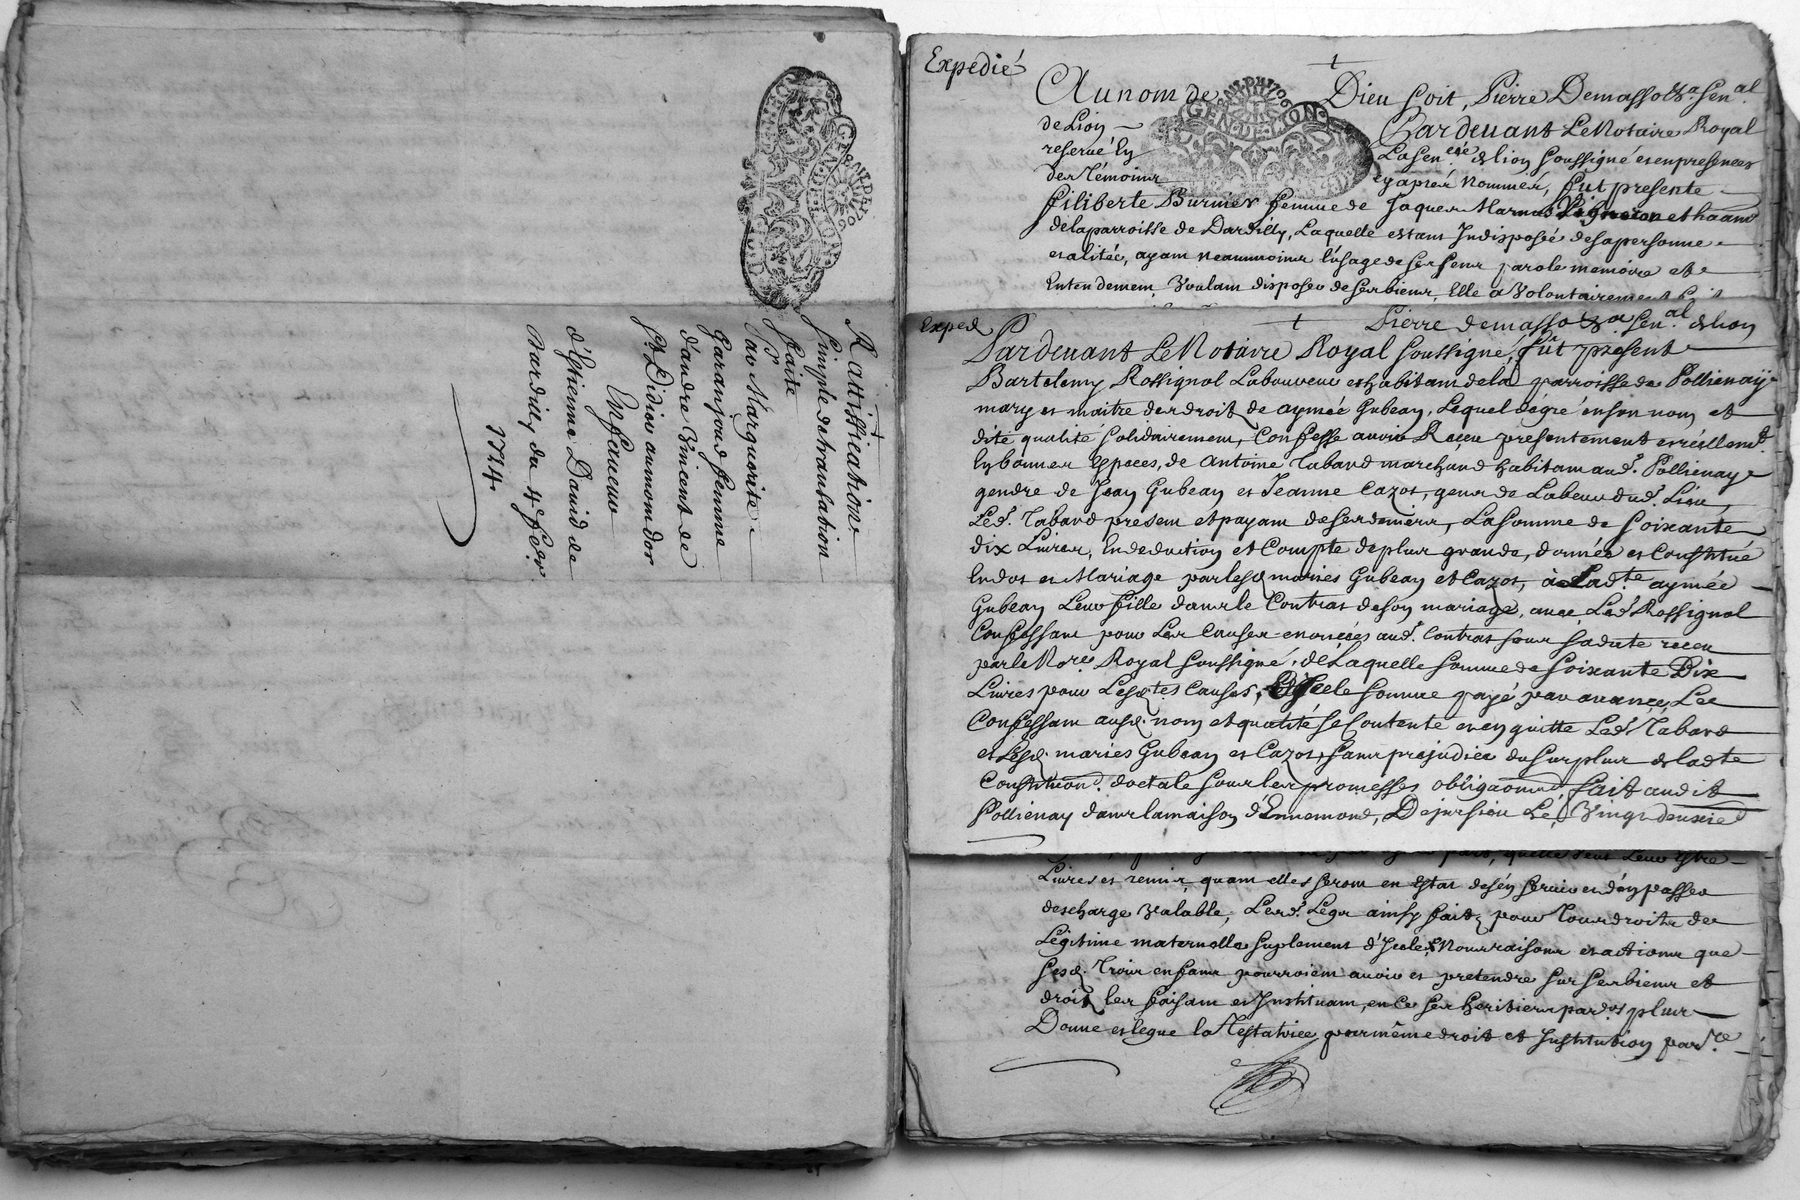 Rattiffication
simple de translation
faite
Par Marguerite
Garanjoud femme
d'andre Vincent de
St. Didier au mont dor
En faveur
d'Etienne David de
Dardilly du 4e. feb.r
1724.
GEN. DE LION
Expedié
Au nom de Dieu soit, Pierre Demasso &.a Sen.al
de Lion Pardevant Le Notaire Royal
reservé En La Sen.cée d Lion soussigné et en presences
des Témoins cy apres Nommés, fut presente
filiberte Burnier femme de Jaques Marnas Vigneron et habitant
de la parroisse de Dardilly, Laquelle estant Indisposée de sa personne
et alitée, ayant Neanmoins l'usage de ses sens parole memoire et
Entendement, Voulant disposer de ses biens, Elle a Volontairement
Exped
Pierre demasso &.a Sen.al d Lion
Pardevant Le Notaire Royal soussigné, fût present
Bartelemy Rossignol Laboureur et habitant de la parroisse de Pollienay
mary et maitre des droits de aymée Gubean, Lequel de gré en son nom et
dite qualité solidairement, Confesse avoir Receu presentement et réellem.t
En bonnes Especes, de Antoine Tabard marchand habitant aud.t Pollienay
gendre de Jean Gubean et Jeanne Cazot, gens de Labeur dud.t Lieu,
Led.t Tabard present et payant de ses deniers, La somme de soixante
dix Livres, En deduction et Compte de plus grande, donnée et Constitué
En dot et Mariage par lesd. mariés Gubean et Cazot, à Ladte aymée
Gubean Leur fille dans le Contrat de son mariage, avec Led.t Rossignol
Confessant pour Les Causes enoncées aud.t Contrat sous sa date receu
par le No.re Royal soussigné, de Laquelle somme de soixante Dix
Livres pour Lesdtes Causes, somme payé par avance, Le
Confessant ausd. nom et qualité se Contente et en quitte Led.t Tabard
et Lesd. mariés Gubean et Cazot, sans prejudice du surplus de ladte
Constituon. doctale sous les promesses obligaons fait audit
Pollienay dans la maison d'Ennemond, Dejussieu Le, Vingt deuxie
Livres et remis, quant elles seront en Estat de s'en servir et d'en passer
descharge Valable, Lesd.t Legs ainsy faits pour Tous droits de
Legitime maternelle suplement d'Jcelle, Nourraisons et actions que
sesd. Trois enfans pourroient avoir et pretendre sur ses biens et
droits les faisant et Instituant, en ce ses heritiers par.ers plus
Donne et legue la Testatrice par même droit et Institution par.re